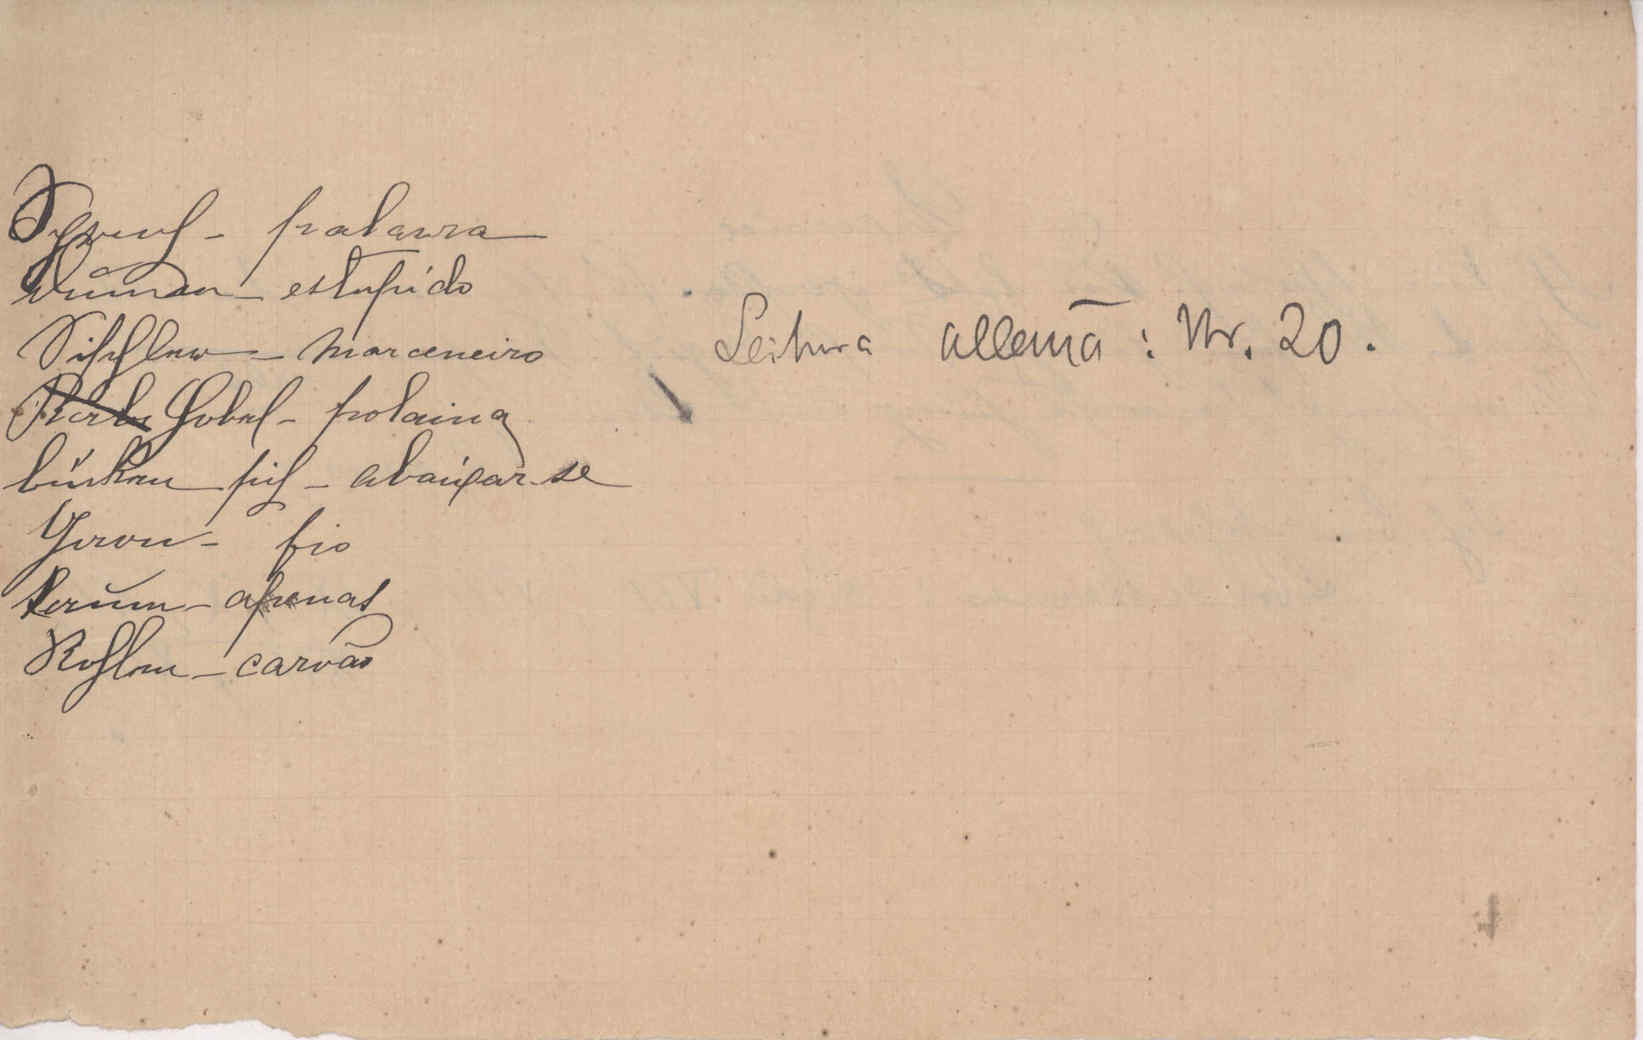 Spruch - palavra
- estupido
Tischler - marceneiro
Hobel - polaina
bücken sich - abaixar-se
Garn - fio
kaum - apenas
Kohlen - carvão
Leitura allemã : Nr. 20.